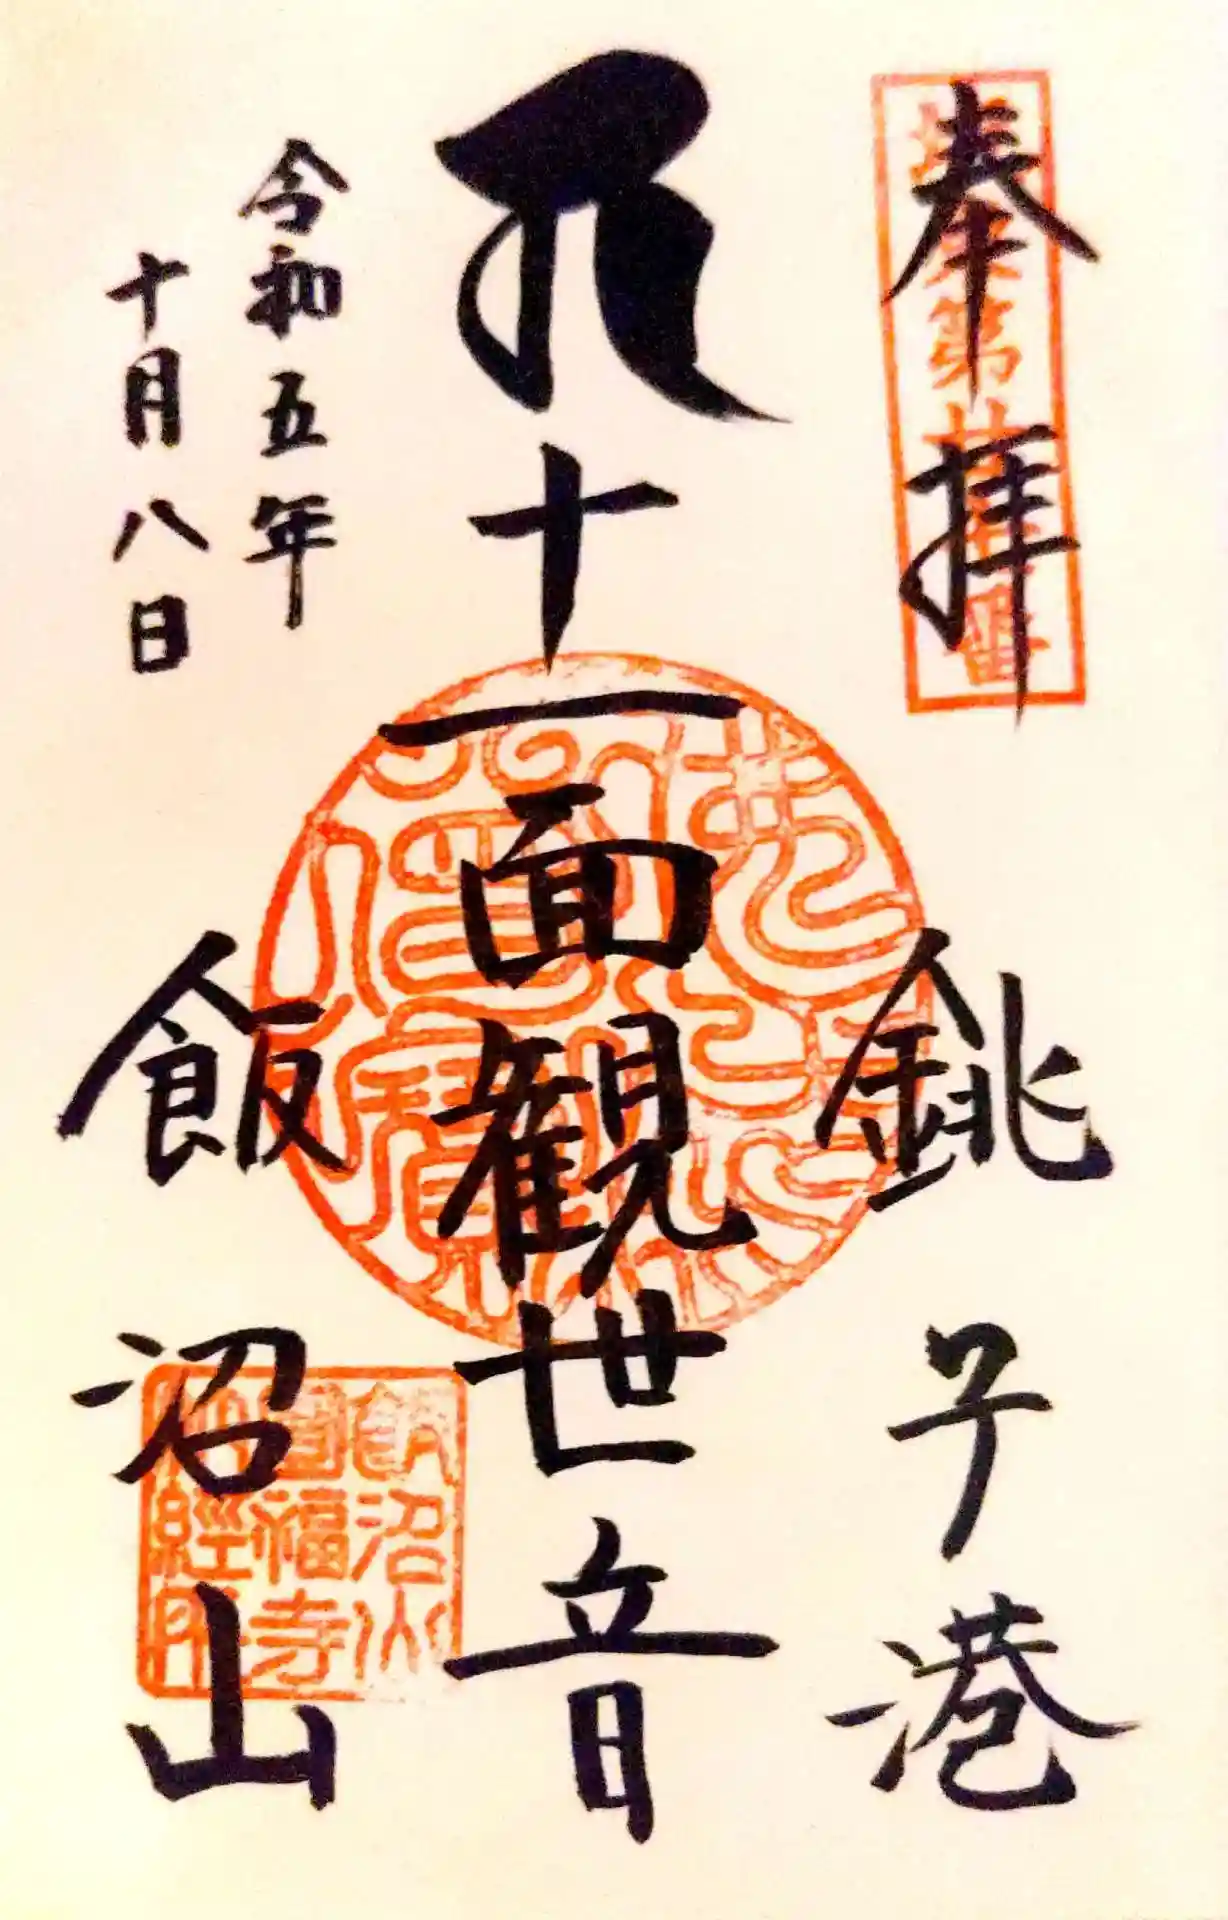 奉拝
坂東第廿七番
銚子港
十一面観世音
令和五年
十月八日
飯沼山
飯沼山
圓福寺
納經所